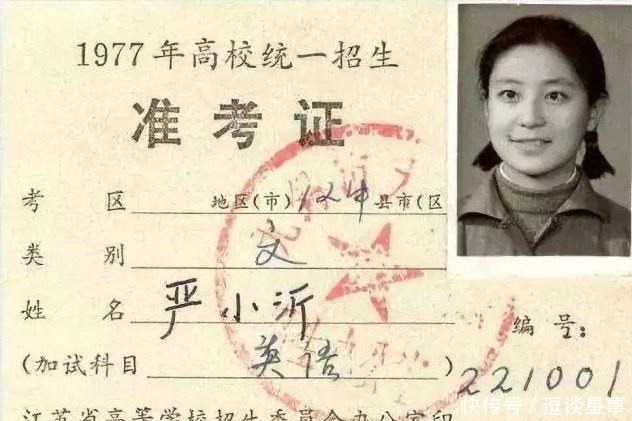 1977年高校统一招生
准考证
考 区 地区(市)12中县市(区
类 别 文
姓 名 严小沂
编号:
(加试科目 英语 )
221001
江苏省高等学校招生委员会办公室印
快传号/逗谈星事